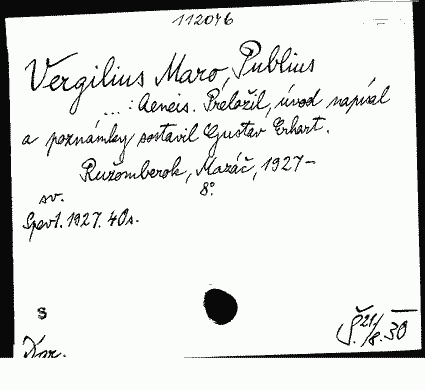 112046
Vergilius Maro, Publius
... : Aeneis. Preložil, úvod napísal
a poznámky sostavil Gustav Erhart.
Ružomberok, Mazáč, 1927 –
sv. 8°.
Spev 1. 1927. 40 s.
S
Š. 21/8. 30
Kar.